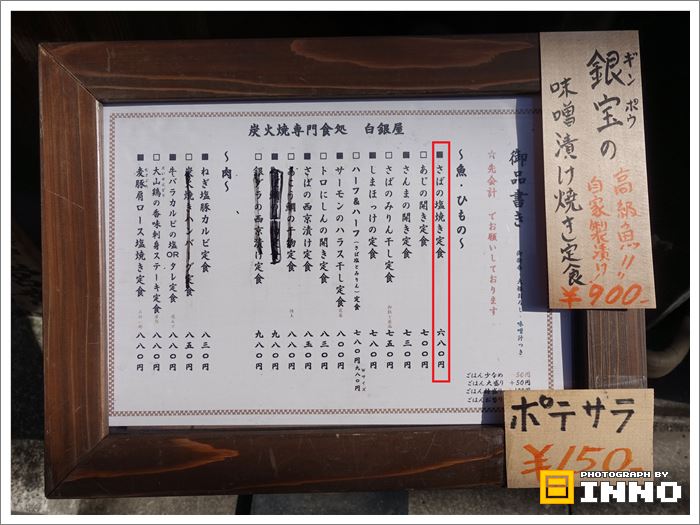 炭火焼専門食処 白銀屋
御品書き
☆先会計 でお願いしております
〜魚・ひもの〜
■さばの塩焼き定食 六八〇円
□あじの開き定食 七〇〇円
■さんまの開き定食 七三〇円
□さばのみりん干し定食 七五〇円
■しまほっけの定食 七八〇円
□ハーフ&ハーフ(さば塩とみりん)定食 七八〇円
■サーモンのハラス干し定食 八〇〇円
□トロにしんの開き定食 八三〇円
■さばの西京漬け定食 八五〇円
八八〇円
九八〇円
□銀ダラの西京漬け定食 九八〇円
〜肉〜
■ねぎ塩豚カルビ定食 八三〇円
□炭火焼きハンバーグ定食 八五〇円
■牛バラカルビの塩ORタレ定食 八八〇円
□大山鶏の香味刺身ステーキ定食 八八〇円
■麦豚肩ロース塩焼き定食 八八〇円
ごはん 少なめ
ごはん 大盛り +50円
ギンポウ
銀宝の
味噌漬け焼き定食
高級魚!!
自家製漬け!
¥900-
ポテサラ
¥150-
PHOTOGRAPH BY
INNO